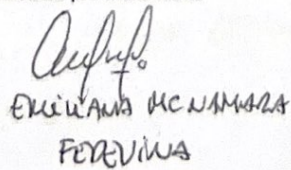 EMILIANA MCNAMARA
FEDEVILLA